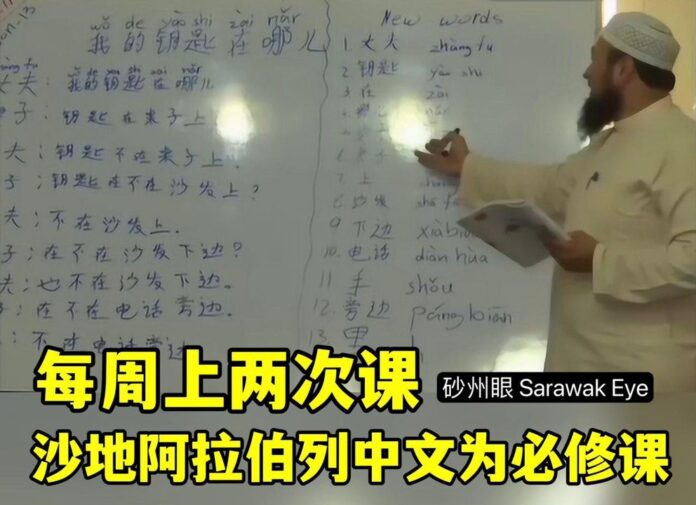 wǒ de yào shi zài nǎr
我的钥匙在哪儿
我的钥匙在哪儿
子：钥匙在桌子上
夫：钥匙不在桌子上.
子：钥匙在不在沙发上？
夫：不在沙发上.
子：在不在沙发下边？
夫：也不在沙发下边.
：在不在电话旁边.
：不在电话旁边
New words
1. 丈夫 zhàng fu
2 钥匙 yào shi
3 在 zài
7. 上
8 沙发 shā fā
9 下边 xiàbiān
10. 电话 diàn huà
11 手 shǒu
12. 旁边 pángbiān
13.
每周上两次课
砂州眼 Sarawak Eye
沙地阿拉伯列中文为必修课